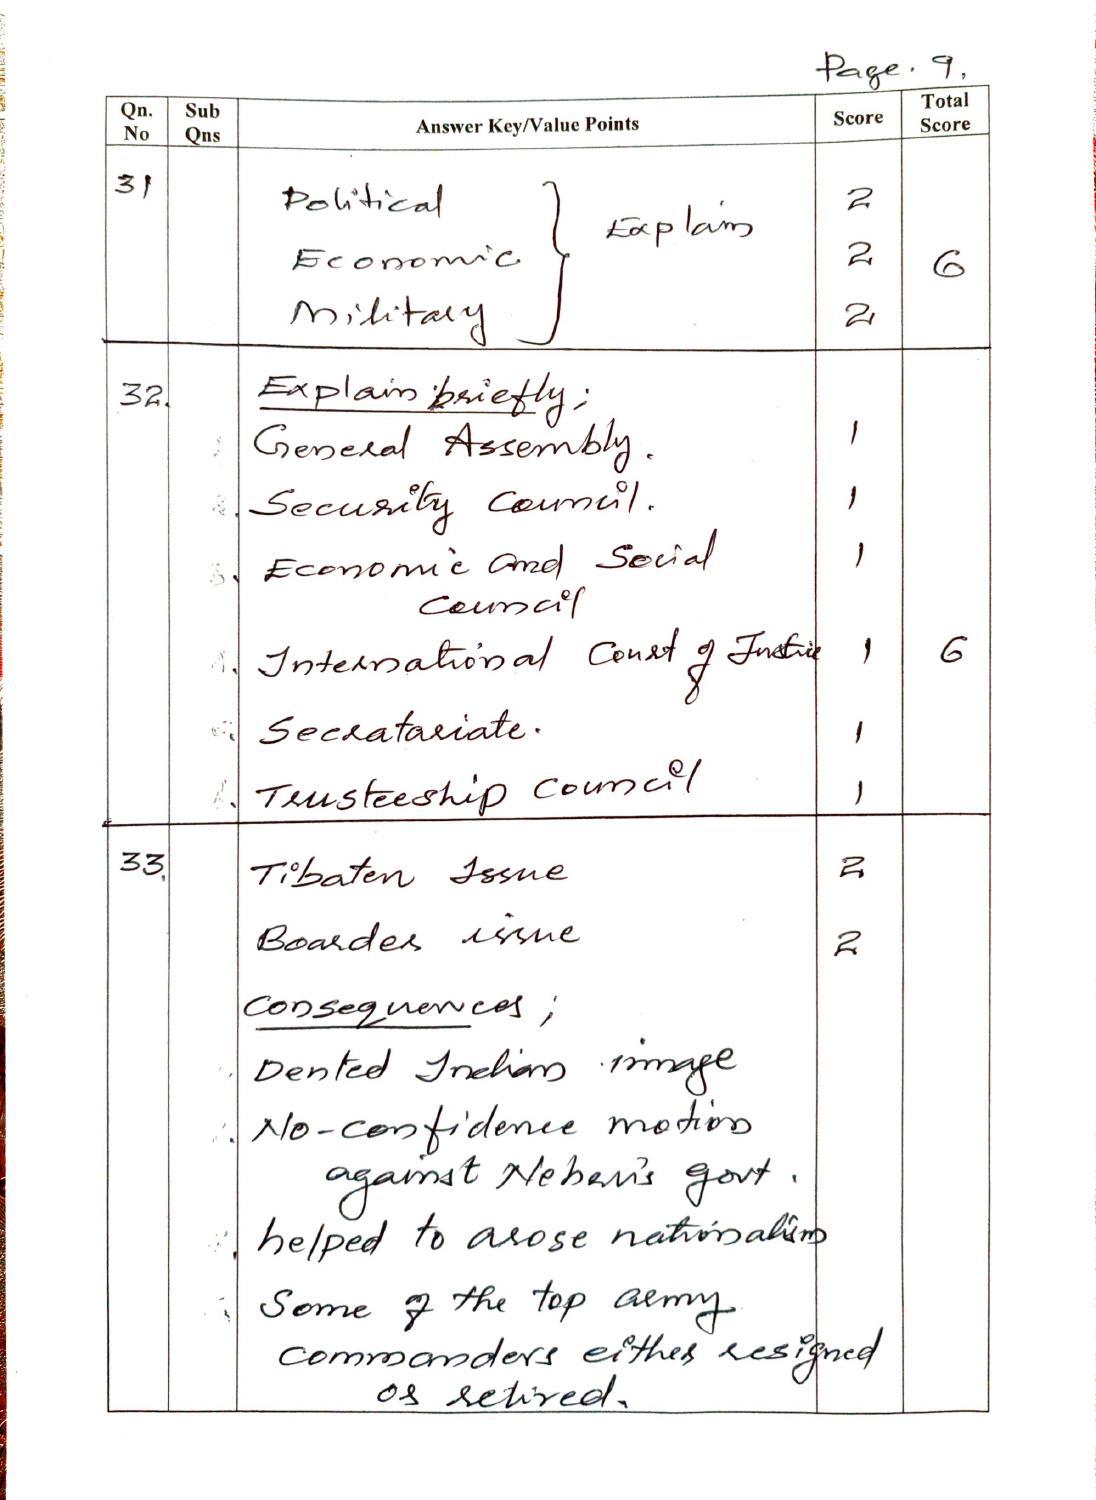 Page. 9.
Qn. No Sub Qns Answer Key/Value Points Score Total Score
31 Political 2
Explain
Economic 2 6
Military 2
32. Explain briefly;
General Assembly. 1
Security Council. 1
3. Economic and Social 1
Council
4. International Court of Justice 1 6
Secratariate. 1
Trusteeship Council 1
33. Tibaten Issue 2
Boarder issue 2
Consequences;
Dented Indian image
No-confidence motion
against Nehru's govt.
helped to arose nationalism
Some of the top army
commanders either resigned
or retired.